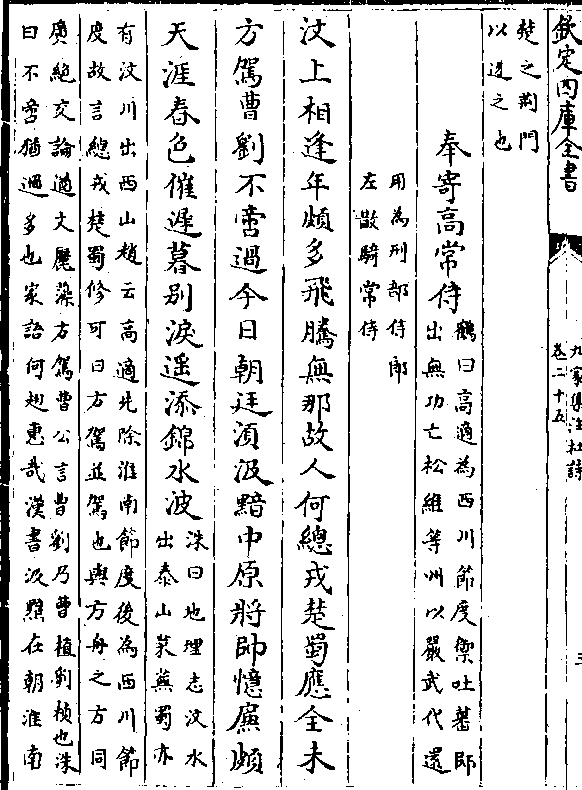 欽定四庫全書
九家集注杜詩
卷二十五
楚之荆門
以送之也
奉寄髙常侍
鶴曰髙適為西川節度禦吐蕃師
出無功亡松維等州以嚴武代還
用為刑部侍郎
左散騎常侍
汶上相逢年頗多飛騰無那故人何總戎楚蜀應全未
方駕曹劉不啻過今日朝廷湏汲黯中原將帥憶廉頗
天涯春色催遲暮别淚遥添錦水波
洙曰地理志汶水
出泰山萊蕪蜀亦
有汶川出西山趙云高適先除淮南節度後為西川節
度故言總戎楚蜀修可曰方駕並駕也與方舟之方同
廣絶交論遒文麗藻方駕曹公言曹劉乃曹植劉楨也洙
曰不啻猶過多也家語何翅惠哉漢書汲黯在朝淮南